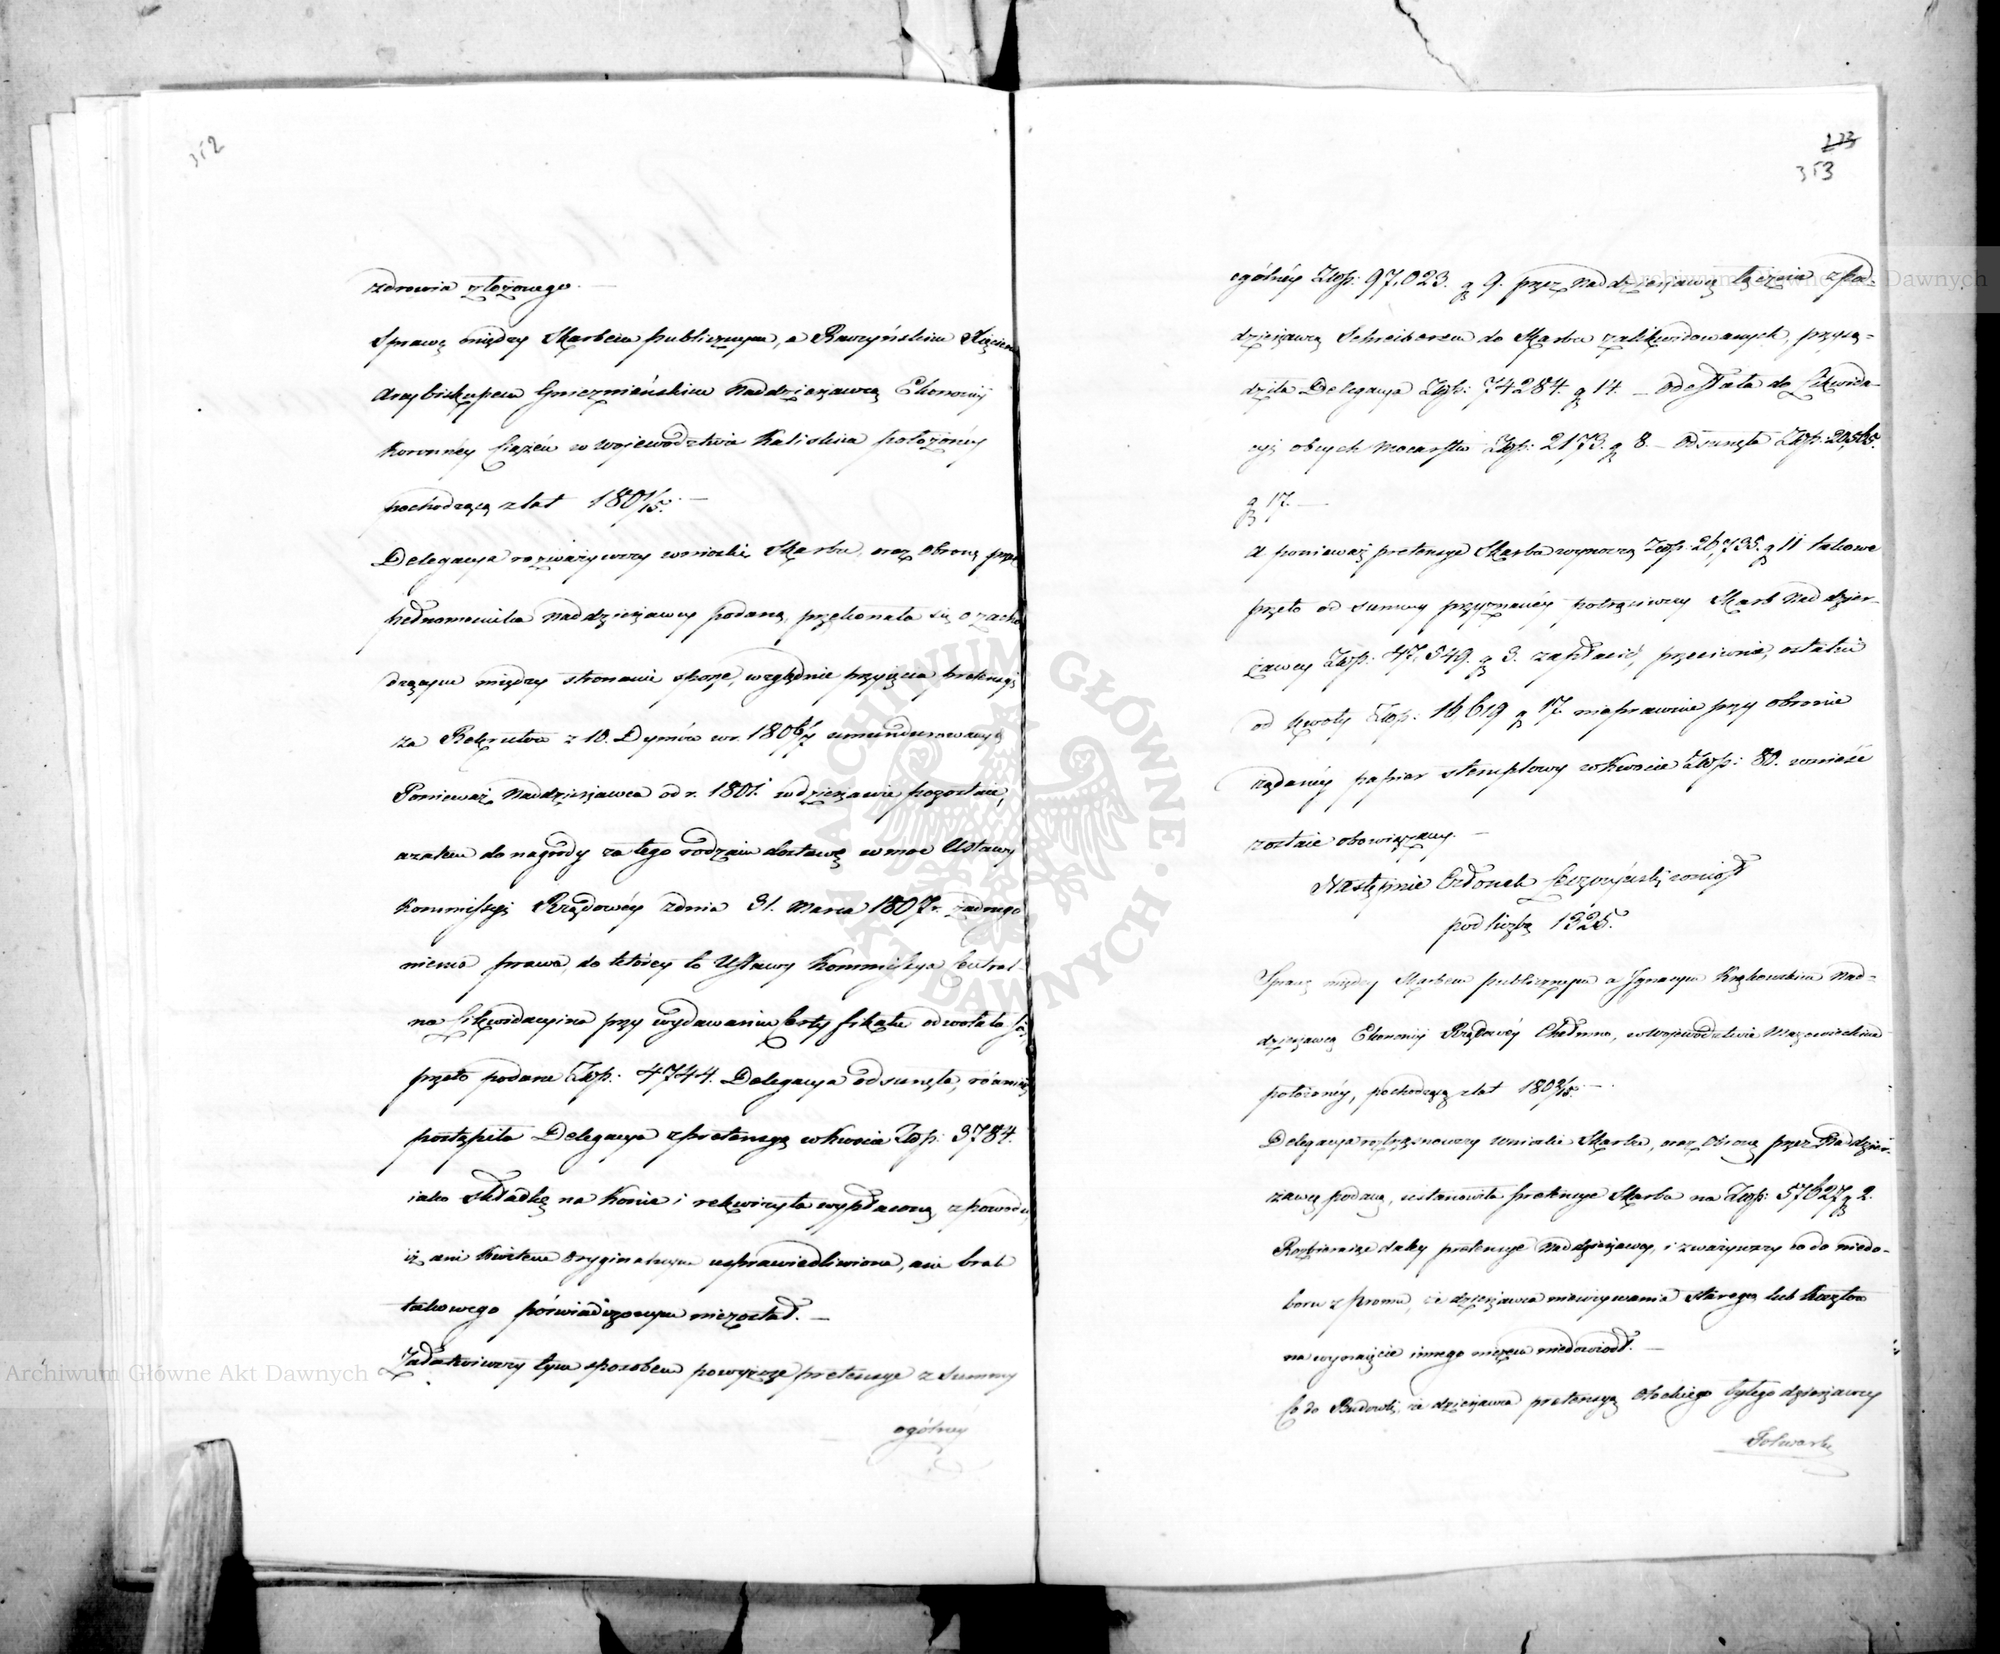 352
zdrowia złożonego. —
Sprawę między Skarbem publicznym, a Raczyńskim Xięciem
Arcybiskupem Gnieznieńskim Naddzierżawcą Ekonomij
Koronnéy Ciążeń w Województwie Kaliskim położonéy
pochodzącą z lat 1801/15. —
Delegacya rozważywszy wnioski Skarbu, oraz obronę przez
Pełnomocnika Naddzierżawcy podaną, przekonała się o zacho-
dzącym między stronami sporze, względnie przyjęcia pretensyi
za Rekrutów z 10. Dymów w r. 1806/7 umundurowanych
Ponieważ Naddzierżawca od r. 1801. w dzierżawie pozostaie,
a zatem do nagrody za tego rodzaiu dostawę w moc Ustawy
Kommissyi Rządowéy z dnia 31. Marca 1807 r. żadnego
niema prawa, do któréy to Ustawy Kommissya Central-
na Likwidacyina przy wydawaniu Certyfikatu odwołała się,
przeto podane Złp: 4744. Delegacya odsunęła, również
postąpiła Delegacya z pretensyą w kwocie Złp: 3784.
iako składkę na Konie i rekwizyta wypłaconą z powodu
iż ani Kwitem oryginalnym usprawiedliwiona, ani brak
takowego poświadczonym niezostał. —
Załatwiwszy tym sposobem powyższe pretensye z Summy
ogólnéy
273
353
ogólnéy Złp: 97,023. g 9. przez Naddzierżawcę łącznie z Pod-
dzierżawcą Schreiberem do Skarbu zalikwidowanych, przysą-
dziła Delegacya Złp: 74284. g 14. — Odesłała do Likwida-
cyi obcych Mocarstw Złp: 2173. g 8. — Odsunęła Złp: 20,565.
g 17. —
A ponieważ pretensye Skarbu wynoszą Złp: 26,735. g 11 takowe
przeto od summy przyznanéy potrąciwszy Skarb Naddzier-
żawcy Złp: 47,549. g 3. zapłacić, przeciwnie, ostatni
od kwoty Złp: 16619 g 17. nieprawnie przy obronie
żądanéy papier stemplowy w kwocie Złp: 80. wnieść
zostaie obowiązany. —
Następnie Członek wniosł
pod liczbą 1325.
Sprawę między Skarbem publicznym a Ignacym Krąkowskim Nad-
dzierżawcą Ekonomij Rządowéy Chełmno, w Województwie Mazowieckim
położonéy, pochodzącą z lat 1802/15. —
Delegacya roztrząsnąwszy wnioski Skarbu, oraz obronę przez Naddzier-
żawcę podaną, ustanowiła pretensye Skarbu na Złp: 57627 g 2.
Rozbieraiąc daley pretensye Naddzierżawcy, i zważywszy co do niedo-
boru z Promu, że dzierżawca nieużywania starego, lub kosztów
na wynaięcie innego niedowiodł. —
Co do Budowli, że dzierżawca pretensyą tylego dzierżawcy
Folwarku
Archiwum Główne Akt Dawnych
Archiwum Główne Akt Dawnych
ARCHIWUM GŁÓWNE · AKT DAWNYCH ·